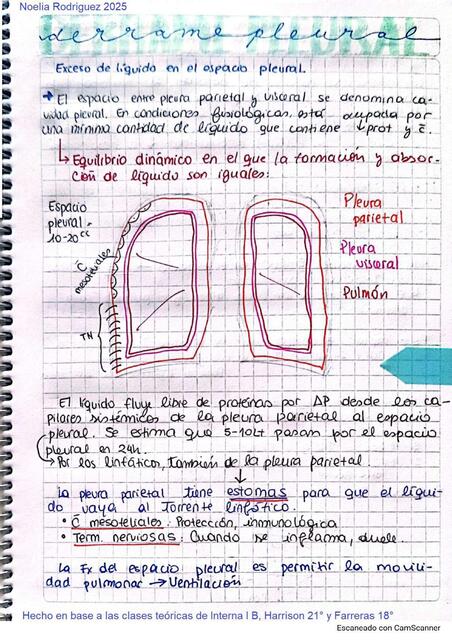 Noelia Rodriguez 2025
derrame pleural
Exceso de líquido en el espacio pleural.
→ El espacio entre pleura parietal y visceral se denomina ca-
vidad pleural. En condiciones fisiológicas, está ocupada por
una mínima cantidad de líquido que contiene ↓prot y c̄.
↳ Equilibrio dinámico en el que la formación y absor-
ción de líquido son iguales:
Espacio
pleural:
10-20cc
Pleura
parietal
Pleura
visceral
Pulmón
C̄
mesoteliales
TN
El líquido fluye libre de proteínas por ΔP desde los ca-
pilares sistémicos de la pleura parietal al espacio
pleural. Se estima que 5-10Lt pasan por el espacio
pleural en 24h.
→ Por los linfáticos, también de la pleura parietal.
↓
La pleura parietal tiene estomas para que el líqui-
do vaya al torrente linfático.
• C̄ mesoteliales: Protección, inmunológica
• Term. nerviosas: Cuando se inflama, duele.
La Fx del espacio pleural es permitir la movili-
dad pulmonar → Ventilación
Hecho en base a las clases teóricas de Interna I B, Harrison 21° y Farreras 18°
Escaneado con CamScanner